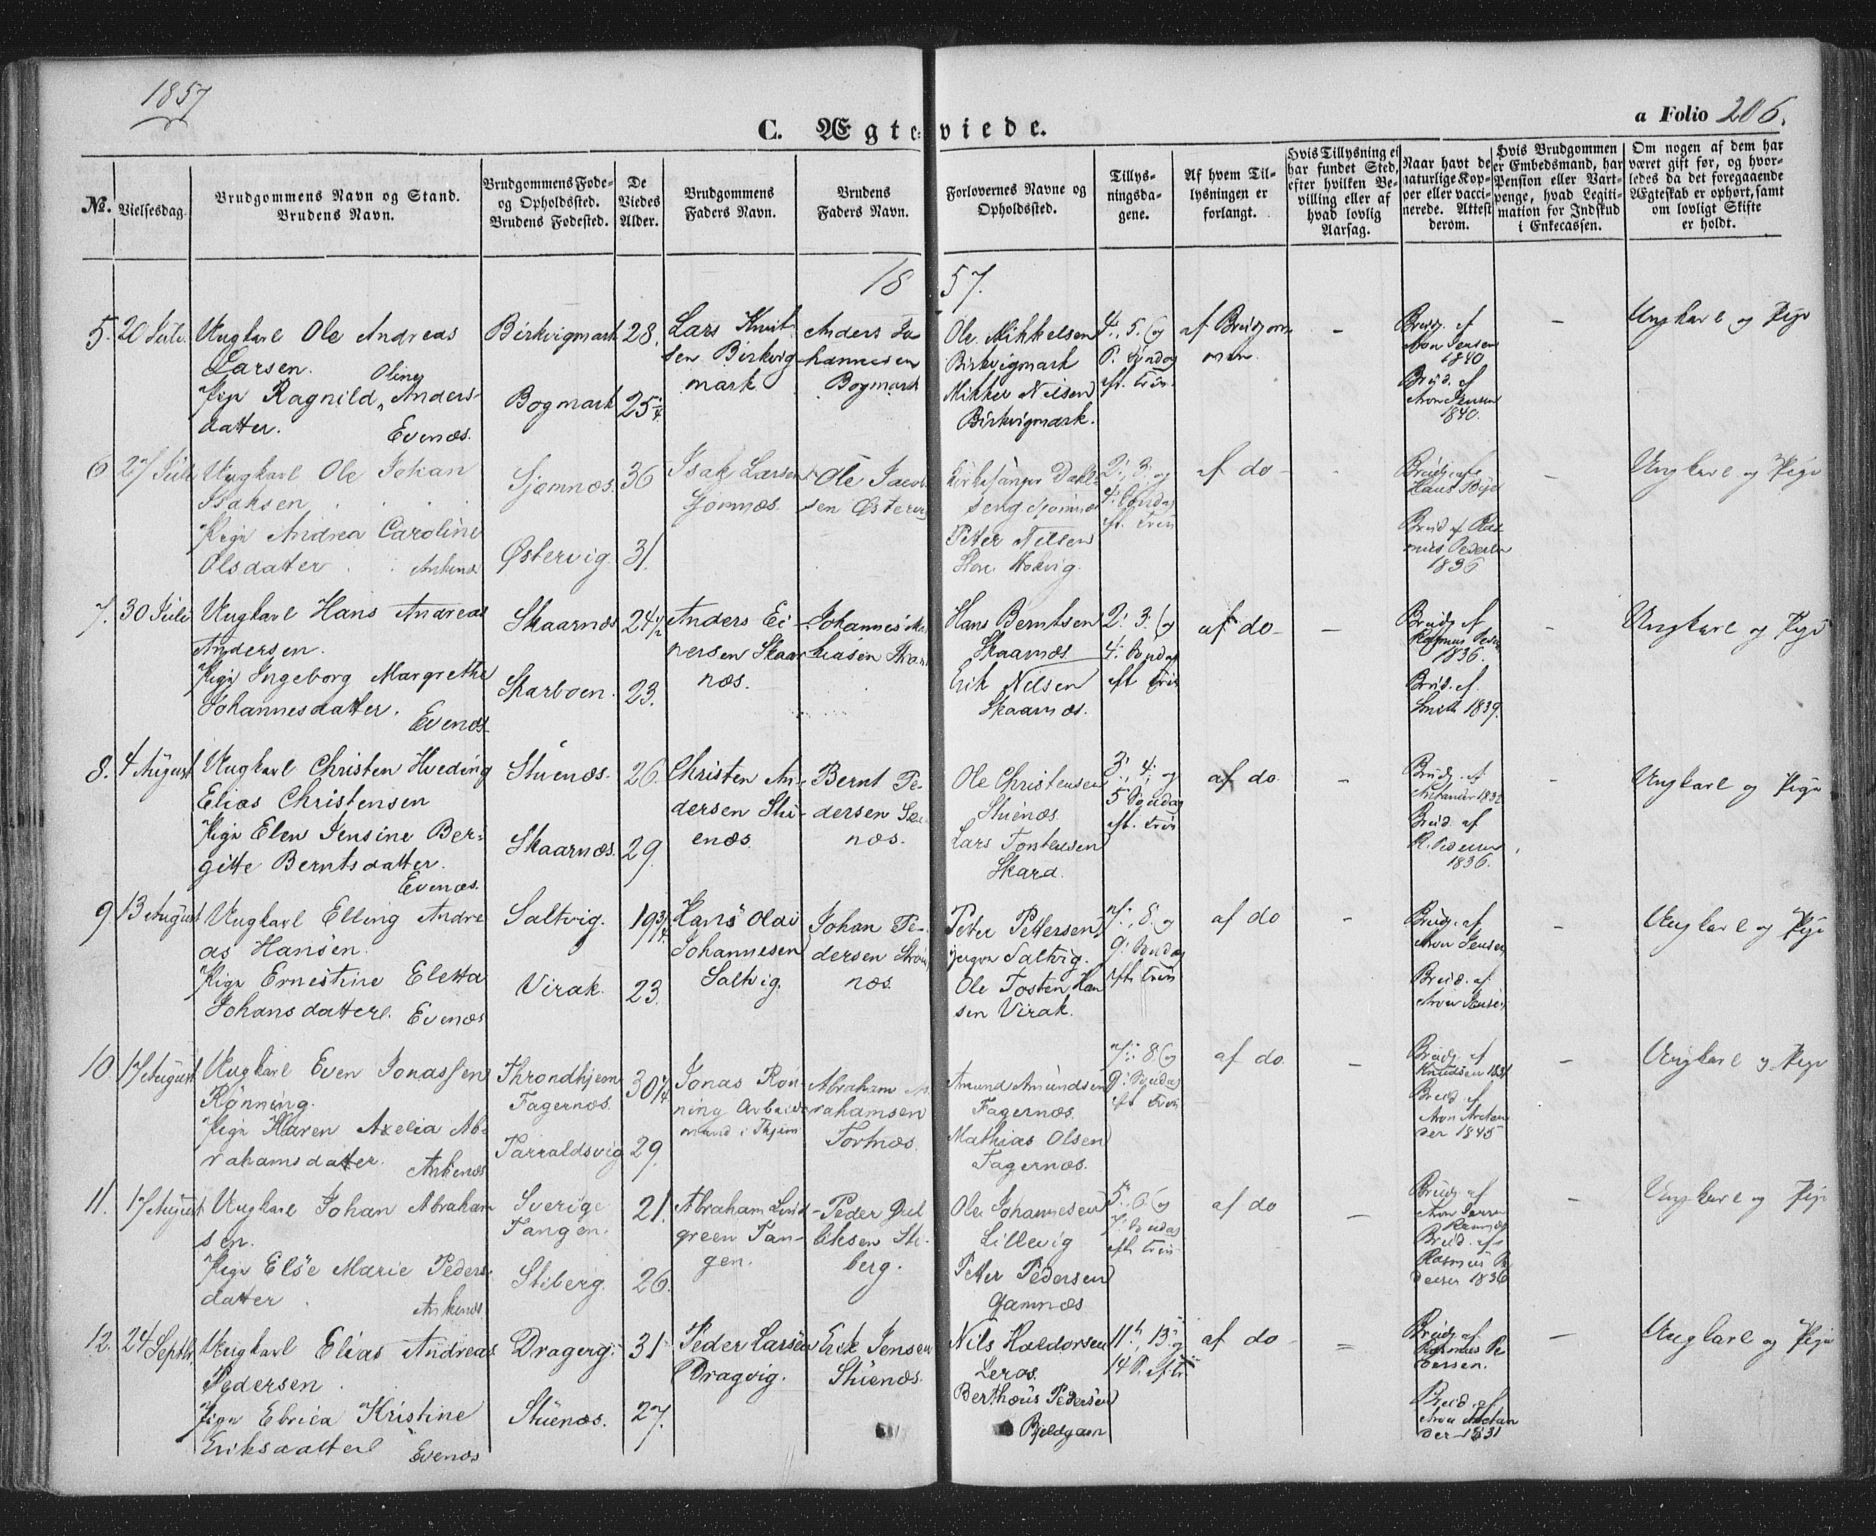 1857
C. Ægteviede.
a Folio 206.
No.
Vielsesdag.
Brudgommens Navn og Stand.
Brudens Navn.
Brudgommens Føde-
og Opholdssted.
Brudens Fødested.
De
Viedes
Alder.
Brudgommens
Faders Navn.
Brudens
Faders Navn.
Forlovernes Navne og
Opholdssted.
Tillys-
ningsda-
gene.
Af hvem Til-
lysningen er
forlangt.
Hvis Tillysning ei
har fundet Sted,
efter hvilken Be-
villing eller af
hvad lovlig
Aarsag.
Naar havt de
naturlige Kop-
per eller vacci-
nerede. Attest
derom.
Hvis Brudgommen
er Embedsmand, har
Pension eller Vart-
penge, hvad Legiti-
mation for Indskud
i Enkecassen.
Om nogen af dem har
været gift før, og hvor-
ledes da det foregaaende
Ægteskab er ophørt, samt
om lovligt Skifte
er holdt.
1857.
5. 20 Juli. Ungkarl Ole Andreas
Larsen.
Oline
Pige Ragnild Anders-
datter. Evenæs.
Birkvigmark 28.
Bogmark 25¼
Lars Knut-
sen Birkvig-
mark
Anders Jo-
hannesen
Bogmark
Ole Mikkelsen
Birkvigmark
Mikkel Nilsen
Birkvigmark.
4., 5. og
6. Søndag
eft. Trin.
af Brudgom-
men
-
Brudg. af
Aron Jensen
1840
Brud. af
Aron Jensen
1840.
-
Ungkarl og Pige
6 27 Juli Ungkarl Ole Johan
Isaksen
Pige Andrea Caroline
Olsdatter. Ankenæs
Sjomnæs. 36
Østervig. 31.
Isak Larsen
Sjomnæs.
Ole Jacob-
sen Østervig
Kirkesanger Dahl-
seng Sjomnæs
Peter Nilsen
2., 3. og
4. Søndag
eft. Trin
af do
-
Brudg. af
Hans
Brud af Ras-
mus Pedersen
1836
Ungkarl og Pige
7. 30 Juli Ungkarl Hans Andreas
Andersen.
Pige Ingeborg Margrethe
Johannesdatter.
Evenæs
Skaarnæs 24½
Skarboen. 23.
Anders Ei-
nersen Skaar-
næs.
Johannes
Hans Berntsen
Skaarnæs
Erik Nilsen
Skaarnæs.
2. 3. og
4. Søndag
eft Trin
af do
-
Brudg. af
Rasmus Peder
1836.
Brud. af
Smith 1839.
-
Ungkarl og Pige
8. 4 August Ungkarl Christen Hveding
Elias Christensen
Pige Elen Jensine Ber-
gitte Berntsdatter.
Evenæs.
Stuenæs. 26.
Skaarnæs. 29.
Christen An-
dersen Stu-
enæs.
Bernt Pe-
dersen
næs.
Ole Christensen
Stuenæs.
Lars Torstensen
Skard.
3., 4., og
5 Søndag
eft. Trin
af do
-
Brudg. af
Brud. af
R. Pedersen
1836.
Ungkarl og Pige
9. 13 August Ungkarl Elling Andre-
as Hansen.
Pige Ernestine Eletta
Johansdatter. Evenæs
Saltvig. 19¾
Virak. 23.
Hans Olai
Johannesen
Saltvig.
Johan Pe-
dersen
næs.
Peter Pettersen
Saltvig.
Ole Tosten Han-
sen Virak.
7., 8. og
9. Søndag
efter Trin
af do
-
Brudg. af
Aron Jensen
Brud. af
Aron Jensen
-
Ungkarl og Pige
10. 17 August Ungkarl Even Jonassen
Rønning.
Pige Karen Axelia Ab-
rahamsdatter.
Ankenæs
Throndhjem 30¼
Fagernæs.
Tarraldsvig 29.
Jonas Røn-
ning Arbeids-
mand i Thjem
Abraham
Abrahamsen
Tortnæs.
Amund Amundsen
Fagernæs.
Mathias Olsen
Fagernæs.
7., 8. og
9. Søndag
eft Trin
af do
-
Brudg. af
Knudsen 1831
Brud af
Aron Arctan-
der 1845
-
Ungkarl og Pige
11. 17 August Ungkarl Johan Abraham-
sen.
Pige Else Marie Peders-
datter. Ankenæs
Sverige
Tangen. 21.
Stiberg. 26.
Abraham Lind-
green Tan-
gen.
Peder Gul-
liksen Sti-
berg.
Ole Johannesen
Lillevig
Peter Pedersen
Gamnæs
5. 6 og
7. Søndag
eft Trin
af do
-
Brudg. af
Brud. af
Rasmus Pe-
dersen 1836
-
Ungkarl og Pige
12. 24 Septbr. Ungkarl Elias Andreas
Pedersen.
Pige Ebrica Kristine
Eriksdatter. Evenæs
Dragvig. 31
Stuenæs. 27.
Peder Larsen
Dragvig.
Erik Jensen
Stuenæs.
Nils Haldorsen
Leros.
Berthæus Pedersen
11te, 13 og
14 S. eft Tr
af do
=
Brudg. af
Rasmus Pe-
dersen.
Brud. af
Aron Arctan-
der 1831
-
Ungkarl og Pige